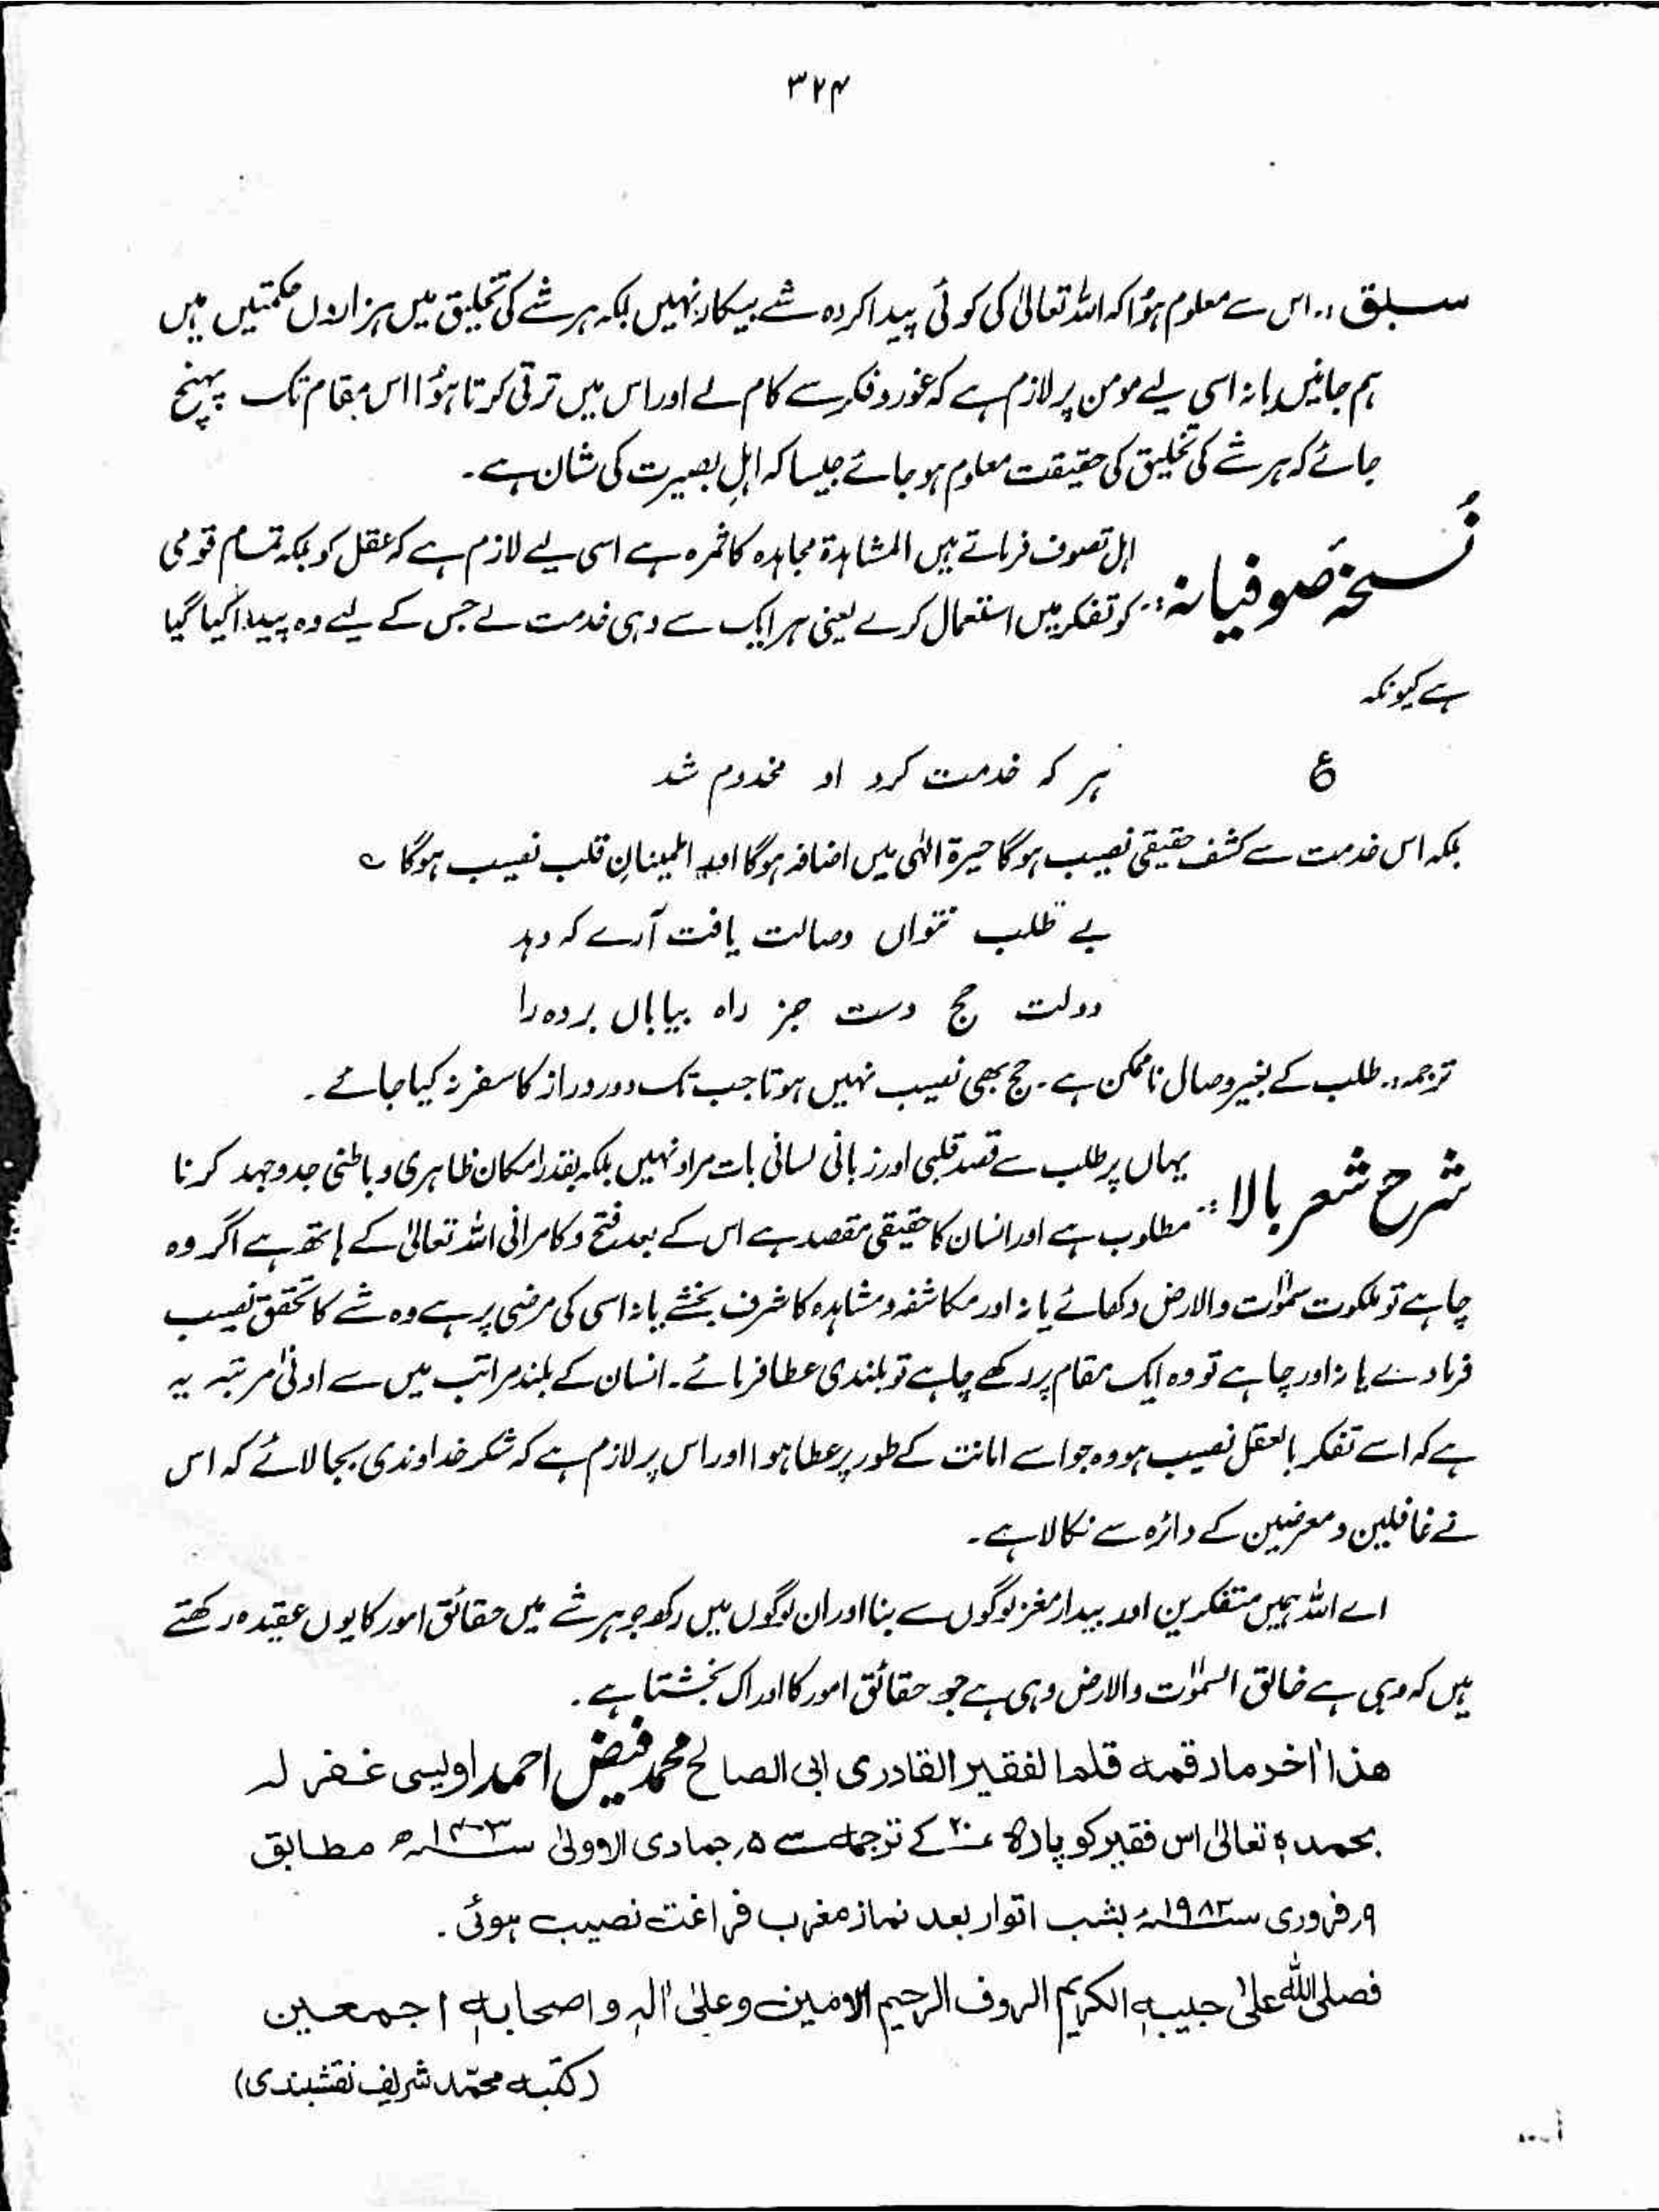 ۳۲۴
سبق :۔ اس سے معلوم ہؤا کہ اللہ تعالیٰ کی کوئی پیدا کردہ شے بیکار نہیں بلکہ ہر شے کی تخلیق میں ہزاروں حکمتیں ہیں
ہم جانیں یا نہ اسی لیے مومن پر لازم ہے کہ غور و فکر سے کام لے اور اس میں ترقی کرتا ہؤا اس مقام تک پہنچ
جائے کہ ہر شے کی تخلیق کی حقیقت معلوم ہو جائے جیسا کہ اہلِ بصیرت کی شان ہے۔
نُسخۂ صوفیانہ :۔ اہل تصوف فرماتے ہیں المشاہدۃ مجاہدہ کا ثمرہ ہے اسی لیے لازم ہے کہ عقل کو بلکہ تمام قومی
کو تفکر میں استعمال کرے یعنی ہر ایک سے وہی خدمت لے جس کے لیے وہ پیدا کیا گیا
ہے کیونکہ
ع ہر کہ خدمت کرد او مخدوم شد
بلکہ اس خدمت سے کشف حقیقی نصیب ہوگا حیرۃ الٰہی میں اضافہ ہوگا اور اطمینانِ قلب نصیب ہوگا ؎
بے طلب نتواں وصالت یافت آرے کہ دہد
دولت حج دست جز راہ بیاباں بردہ را
ترجمہ :۔ طلب کے بغیر وصال ناممکن ہے۔ حج بھی نصیب نہیں ہوتا جب تک دور دراز کا سفر نہ کیا جائے۔
شرح شعر بالا :۔ یہاں پر طلب سے قصد قلبی اور زبانی لسانی بات مراد نہیں بلکہ بقدر امکان ظاہری و باطنی جدوجہد کرنا
مطلوب ہے اور انسان کا حقیقی مقصد ہے اس کے بعد فتح و کامرانی اللہ تعالیٰ کے ہاتھ ہے اگر وہ
چاہے تو ملکوت سمٰوٰت والارض دکھائے یا نہ اور مکاشفہ و مشاہدہ کا شرف بخشے یا نہ اسی کی مرضی پر ہے وہ شے کا تحقق نصیب
فرما دے یا نہ اور چاہے تو وہ ایک مقام پر رکھے چاہے تو بلندی عطا فرمائے۔ انسان کے بلند مراتب میں سے ادنیٰ مرتبہ یہ
ہے کہ اسے تفکر بالعقل نصیب ہو وہ جو اسے امانت کے طور پر عطا ہوا اور اس پر لازم ہے کہ شکر خداوندی بجا لائے کہ اس
نے غافلین و معرضین کے دائرہ سے نکالا ہے۔
اے اللہ ہمیں متفکرین اور بیدار مغز لوگوں سے بنا اور ان لوگوں میں رکھ جو ہر شے میں حقائق امور کا یوں عقیدہ رکھتے
ہیں کہ وہی ہے خالق السمٰوٰت والارض وہی ہے جو حقائق امور کا ادراک بخشتا ہے۔
ھذا اٰخر ما رقمہ قلم الفقیر القادری ابی الصالح محمد فیض احمد اویسی غفر لہ
بحمدہٖ تعالیٰ اس فقیر کو پارہ ۲۰ کے ترجمہ سے ۵؍ جمادی الاولیٰ ۱۴۰۳ھ مطابق
۹؍ فروری ۱۹۸۳ء بشب اتوار بعد نماز مغرب فراغت نصیب ہوئی۔
فصلی اللہ علیٰ حبیبہٖ الکریم الروف الرحیم الامین وعلیٰ اٰلہٖ و اصحابہٖ اجمعین
(کتبہ محمد شریف نقشبندی)